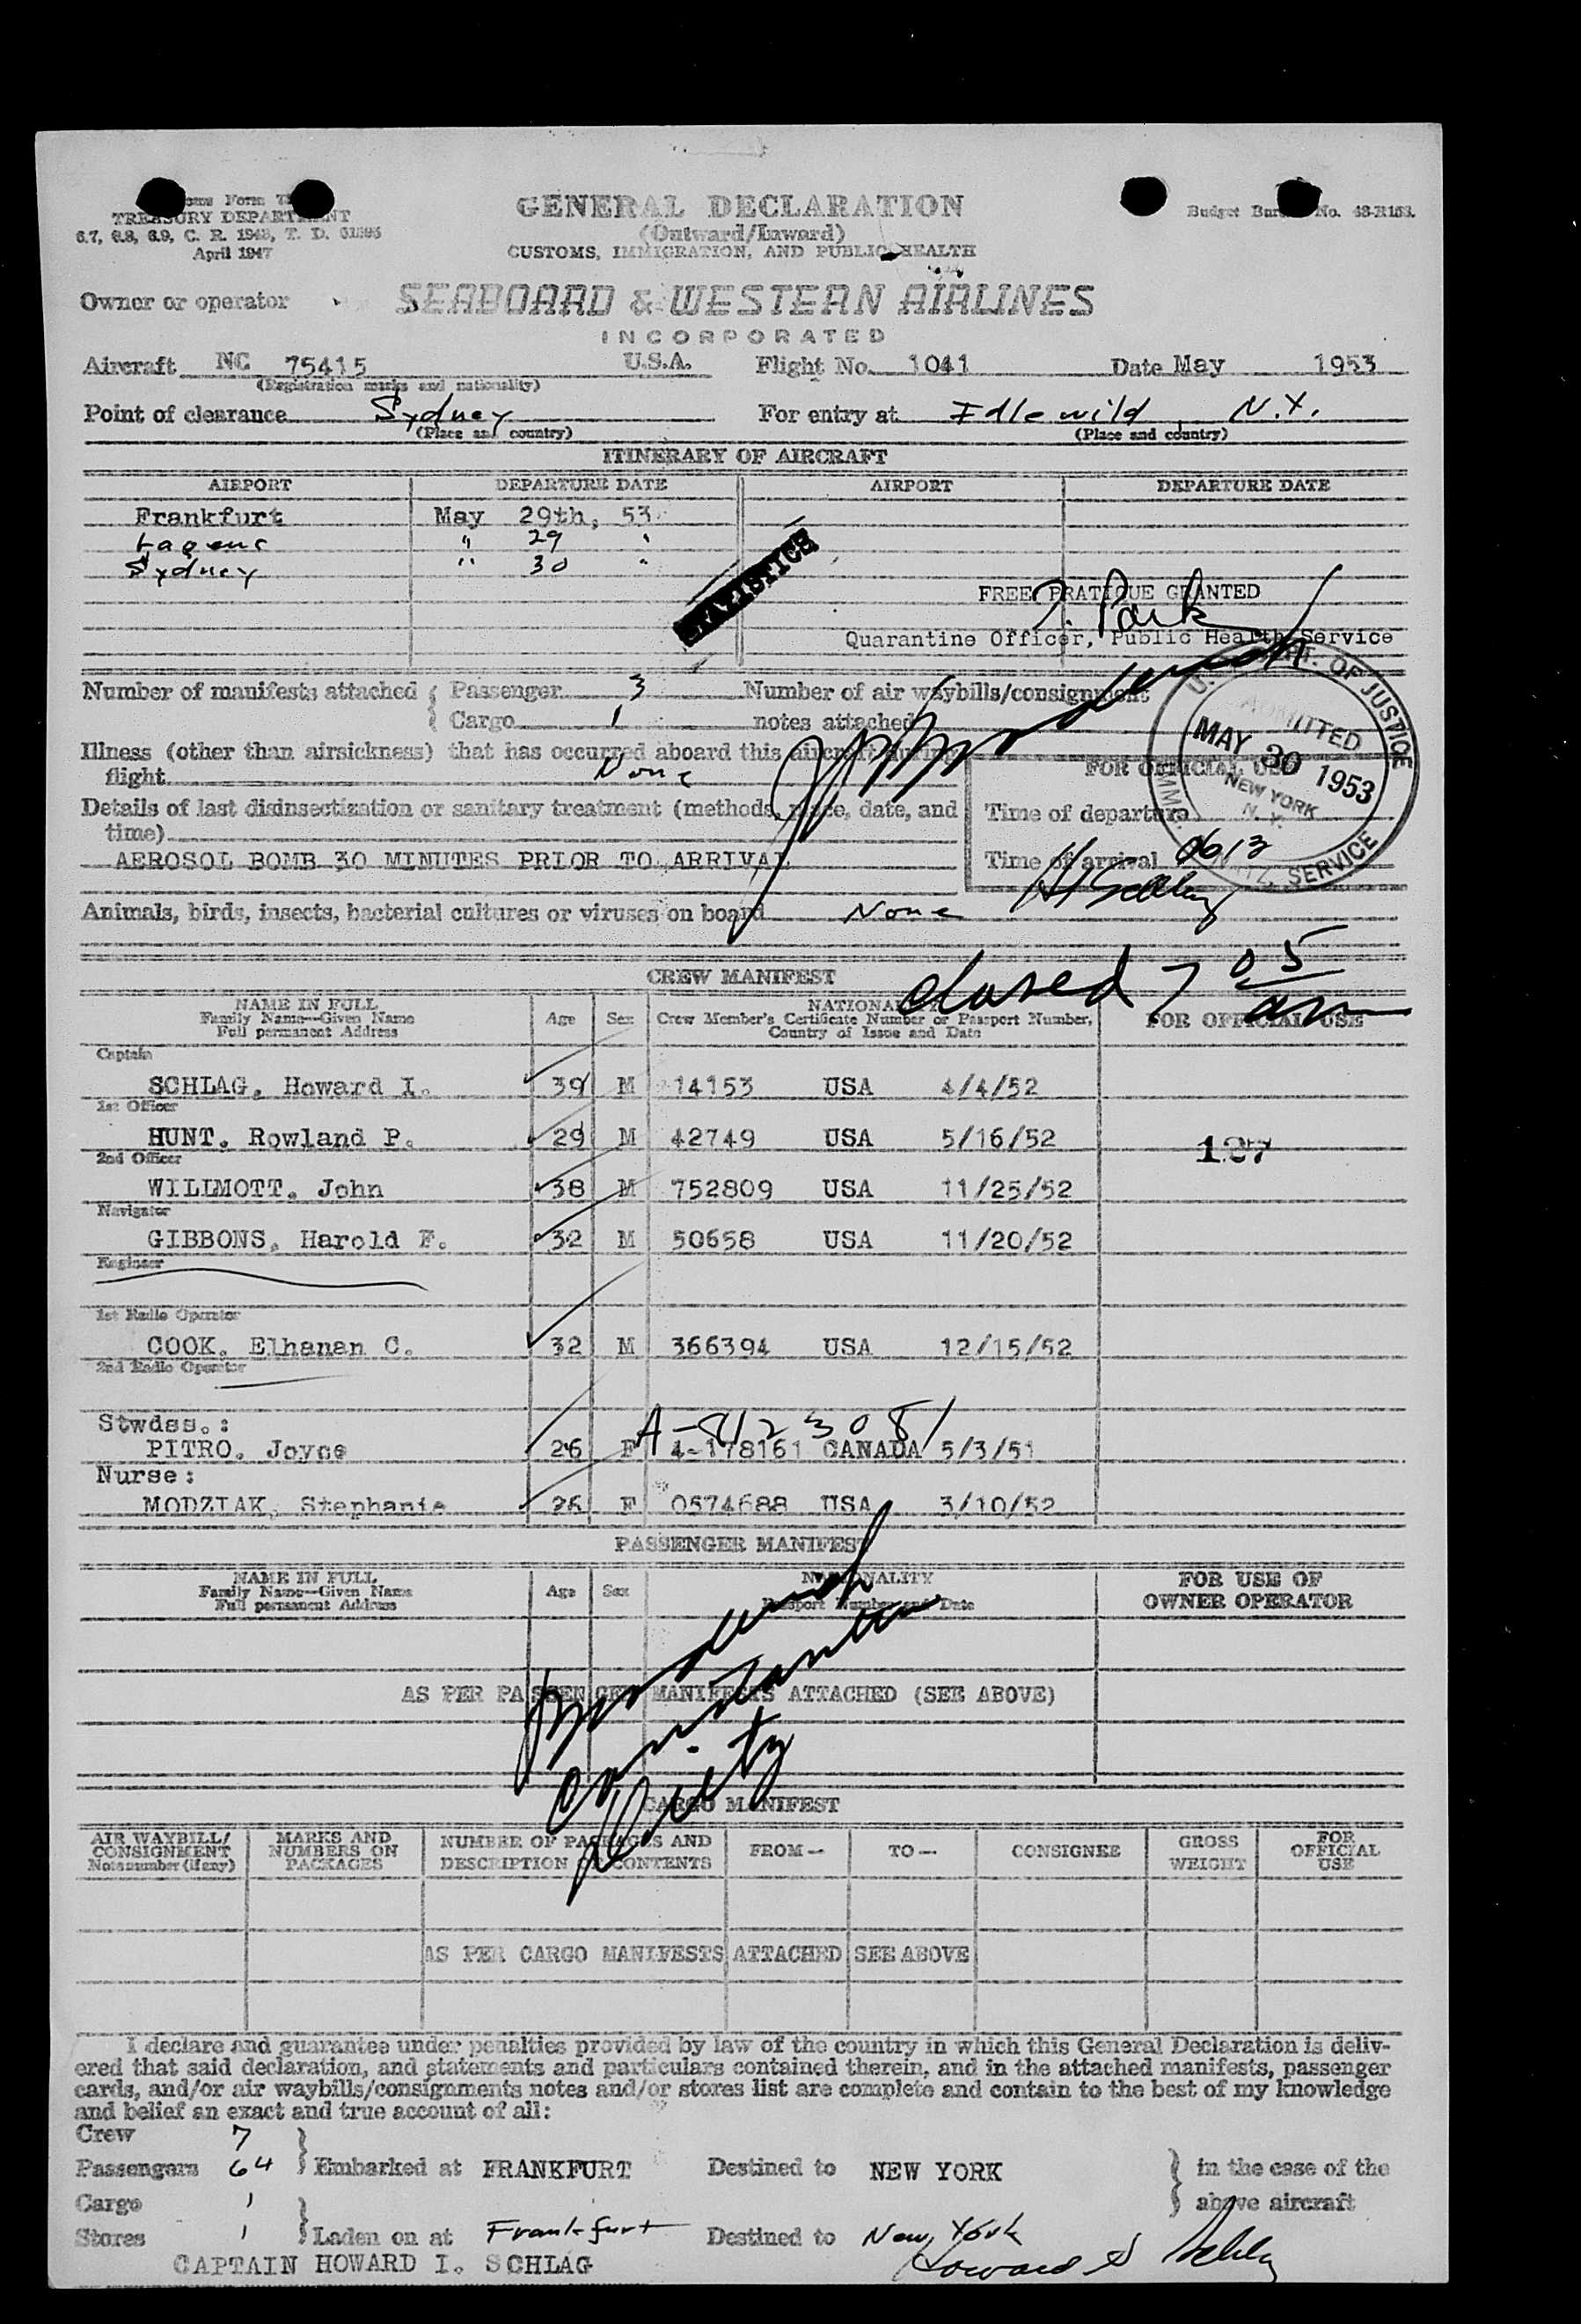 TREASURY DEPARTMENT
April 1947
GENERAL DECLARATION
(Outward/Inward)
CUSTOMS, IMMIGRATION, AND PUBLIC HEALTH
Budget No.
Owner or operator SEABOARD & WESTERN AIRLINES
INCORPORATED
Aircraft NC 75415 U.S.A. Flight No. 1041 Date May 1953
(Registration marks and nationality)
Point of clearance Sydney For entry at Idlewild N.Y.
(Place and country) (Place and country)
ITINERARY OF AIRCRAFT
AIRPORT DEPARTURE DATE AIRPORT DEPARTURE DATE
Frankfurt May 29th, 53
" 29 "
Sydney " 30 "
STATISTICS
FREE PRATIQUE GRANTED
Quarantine Officer, Public Health Service
Number of manifests attached { Passenger 3 Number of air waybills/consignment
Cargo 1 notes attached
U.S. DEPT. OF JUSTICE
ADMITTED
MAY 30 1953
NEW YORK
N. Y.
SERVICE
Illness (other than airsickness) that has occurred aboard this aircraft during
flight None
FOR OFFICIAL USE
Details of last disinsectization or sanitary treatment (methods, place, date, and
time)
Time of departure
AEROSOL BOMB 30 MINUTES PRIOR TO ARRIVAL
Time of arrival 0613
Animals, birds, insects, bacterial cultures or viruses on board None
closed 7 05 am
CREW MANIFEST
NAME IN FULL
Family Name—Given Name
Full permanent Address
Age Sex
NATIONALITY
Crew Member's Certificate Number or Passport Number,
Country of Issue and Date
FOR OFFICIAL USE
Captain
SCHLAG, Howard I. 39 M 14153 USA 4/4/52
1st Officer
HUNT, Rowland P. 29 M 42749 USA 5/16/52
127
2nd Officer
WILLMOTT, John 38 M 752809 USA 11/25/52
Navigator
GIBBONS, Harold F. 32 M 50658 USA 11/20/52
Engineer
1st Radio Operator
COOK, Elhanan C. 32 M 366394 USA 12/15/52
2nd Radio Operator
Stwdss.:
PITRO, Joyce 26 F 4-178161 CANADA 5/3/51
Nurse:
MODZIAK, Stephanie 26 F 0574688 USA 3/10/52
PASSENGER MANIFEST
NAME IN FULL
Family Name—Given Name
Full permanent Address
Age Sex
NATIONALITY
Passport Number and Date
FOR USE OF
OWNER OPERATOR
AS PER PASSENGER MANIFESTS ATTACHED (SEE ABOVE)
CARGO MANIFEST
AIR WAYBILL/
CONSIGNMENT
Note number (if any)
MARKS AND
NUMBERS ON
PACKAGES
NUMBER OF PACKAGES AND
DESCRIPTION OF CONTENTS
FROM—
TO—
CONSIGNEE
GROSS
WEIGHT
FOR
OFFICIAL
USE
AS PER CARGO MANIFESTS ATTACHED SEE ABOVE
I declare and guarantee under penalties provided by law of the country in which this General Declaration is deliv-
ered that said declaration, and statements and particulars contained therein, and in the attached manifests, passenger
cards, and/or air waybills/consignments notes and/or stores list are complete and contain to the best of my knowledge
and belief an exact and true account of all:
Crew 7
Passengers 64 } Embarked at FRANKFURT Destined to NEW YORK } in the case of the
Cargo 1 above aircraft
Stores 1 } Laden on at Frankfurt Destined to New York
CAPTAIN HOWARD I. SCHLAG